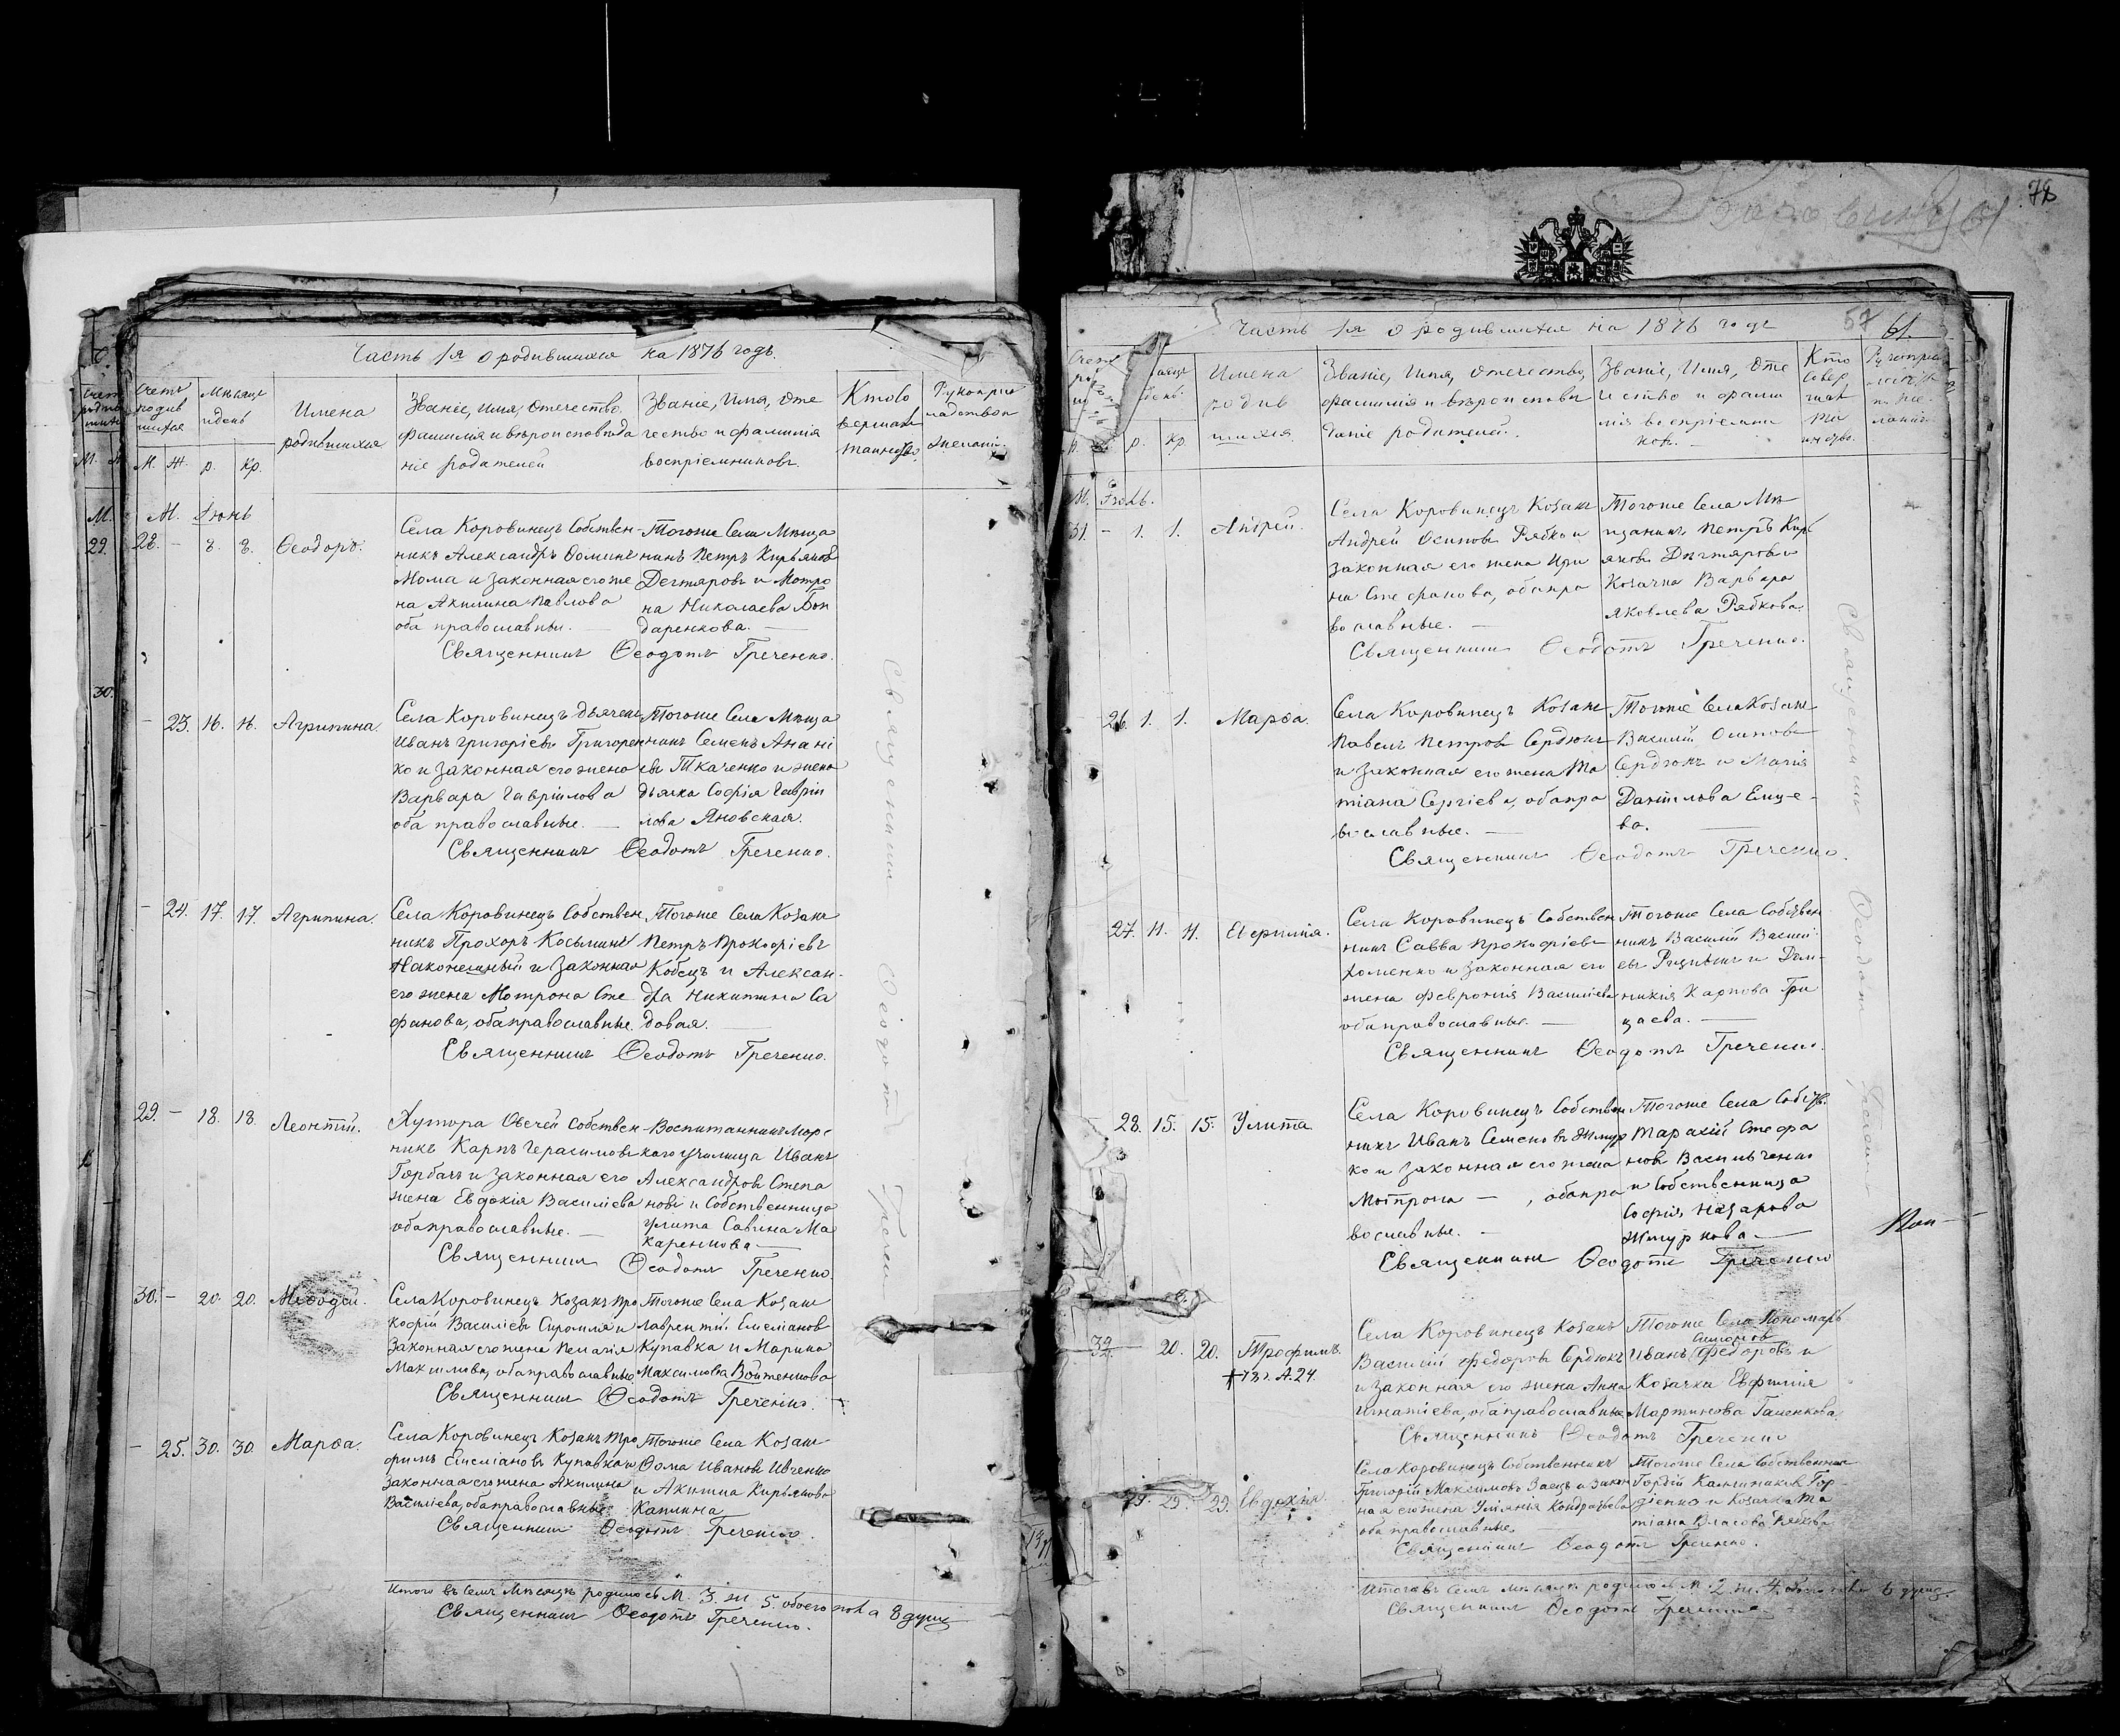 Часть 1я о родившихся на 1876 годъ.
Счетъ родив шихся
Мѣсяцъ и день
Имена родившихся
Званіе, имя, отчество,
фамилія и вѣроисповѣда
ніе родителей
Званіе, Имя, Оте
чество и фамилія
воспріемниковъ.
Кто со
вершалъ
таинство
М. Ж. р. Кр.
М. Іюнь
28. — 8. 8. Ѳеодоръ.
Села Коровинецъ Собствен
никъ Александръ Ѳоминъ
Мома и Законная его же
на Акилина Павлова
оба православны. —
Тогоже Села Мѣща
нинъ Петръ Кирьяковъ
Дегтяровъ и Мотро
на Николаева Бон
даренкова. —
Священникъ Ѳеодотъ Греченко.
— 23. 16. 16. Агрипина.
Села Коровинецъ дьячекъ
Иванъ Григоріевъ Григорен
ко и Законная его жена
Варвара Гавріилова
оба православные. —
Тогоже Села Мѣща
нинъ Семенъ Анані
евъ Ткаченко и жена
дьячка Софія Гавріи
лова Яновская.
Священникъ Ѳеодотъ Греченко.
— 24. 17. 17. Агрипина.
Села Коровинецъ Собствен
никъ Прохоръ Косьминъ
Наконешный и Законная
его жена Мотрона Сте
фанова, оба православные.
Тогоже Села Козакъ
Петръ Прокофіевъ
Кобецъ и Алексан-
дра Никитина Са
довая. —
Священникъ Ѳеодотъ Греченко.
29. — 18. 18. Леонтій.
Хутора Овечей Собствен
никъ Карпъ Герасимовъ
Горбачъ и Законная его
жена Евдокія Василіева
оба православные. —
Воспитанникъ Морс
кого училища Иванъ
Александровъ Степа
новъ и Собственница
Улита Савина Ма
каренкова —
Священникъ Ѳеодотъ Греченко.
30. — 20. 20. Меѳодій.
Села Коровинецъ Козакъ Про
кофій Василіевъ Сиромля и
Законная его жена Пелагія
Максимова, оба православные
Тогоже Села Козакъ
Лаврентій Емеліановъ
Кулавка и Марина
Максимова Войтенкова
Священникъ Ѳеодотъ Греченко.
— 25. 30. 30. Марѳа.
Села Коровинецъ Козакъ Тро
фимъ Емеліановъ Кулавка и
Законная его жена Акилина
Василіева, оба православные
Тогоже Села Козакъ
Ѳома Ивановъ Ивченко
и Акилина Кирьякова
Каплина
Священникъ Ѳеодотъ Греченко.
Итого въ семъ Мѣсяцѣ родилось М. 3. ж. 5. обоего пола 8 душъ
Священникъ Ѳеодотъ Греченко.
Священникъ Ѳеодотъ Греченко
78
57 61.
Часть 1я о родившихся на 1876 годъ
Имена
родив
шихся
Званіе, Имя, Отечество,
фамилія и вѣроисповѣ
даніе родителей.
Званіе, Имя, Оте
чество и фами
лія воспріемни
ковъ. —
Кто
совер
шалъ
та
инство.
р. кр.
М. Іюль.
31. — 1. 1. Андрей.
Села Коровинецъ Козакъ
Андрей Осиповъ Рябко и
законная его жена Ири
на Стефанова, оба пра
вославные. —
Тогоже Села Мѣ
щанинъ Петръ Кирь
яковъ Дегтяровъ и
Козачка Варвара
Яковлева Рябкова.
Священникъ Ѳеодотъ Греченко.
26. 1. 1. Марѳа.
Села Коровинецъ Козакъ
Павелъ Петровъ Сердюкъ
и Законная его жена Та
тіана Сергіева, оба пра
вославные. —
Тогоже Села Козакъ
Василій Осиповъ
Сердюкъ и Марія
Даніилова Емце-
ва. —
Священникъ Ѳеодотъ Греченко.
27. 11. 11. Евфимія.
Села Коровинецъ Собствен
никъ Савва Прокофіевъ
Хоменко и Законная его
жена Февронія Василіева
оба православные. —
Тогоже Села Собствен
никъ Василій Василі
евъ и Дом-
никія Карпова Гри
цаева. —
Священникъ Ѳеодотъ Греченко.
28. 15. 15. Улита
Села Коровинецъ Собствен
никъ Иванъ Семеновъ Жмур
ко и Законная его жена
Мотрона — , оба пра
вославные. —
Тогоже Села Собств.
Тарасій Стефа
новъ Васильченко
и Собственница
Софія Назарова
Жмуркова. —
Священникъ Ѳеодотъ Греченко
32. — 20. 20. Трофимъ.
Села Коровинецъ Козакъ
Василій Федоровъ Сердюкъ
и Законная его жена Анна
Игнатіева, оба православные
Тогоже Села Пономарь
Иванъ Федоровъ и
Козачка Евфимія
Мартинова Галенкова.
Священникъ Ѳеодотъ Греченко
29. 29. 29. Евдокія.
Села Коровинецъ Собственникъ
Григорій Максимовъ Заецъ и Закон
ная его жена Уліянія Кондратьева
оба православные.
Тогоже Села Собственникъ
Гордій Калиниковъ Гор-
діенко и Козачка Та
тіана Власова Рябкова
Священникъ Ѳеодотъ Греченко.
Итого въ семъ мѣсяцѣ родилось м. 2. ж. 4. обоего пола 6 душъ.
Священникъ Ѳеодотъ Греченко
Священникъ Ѳеодотъ